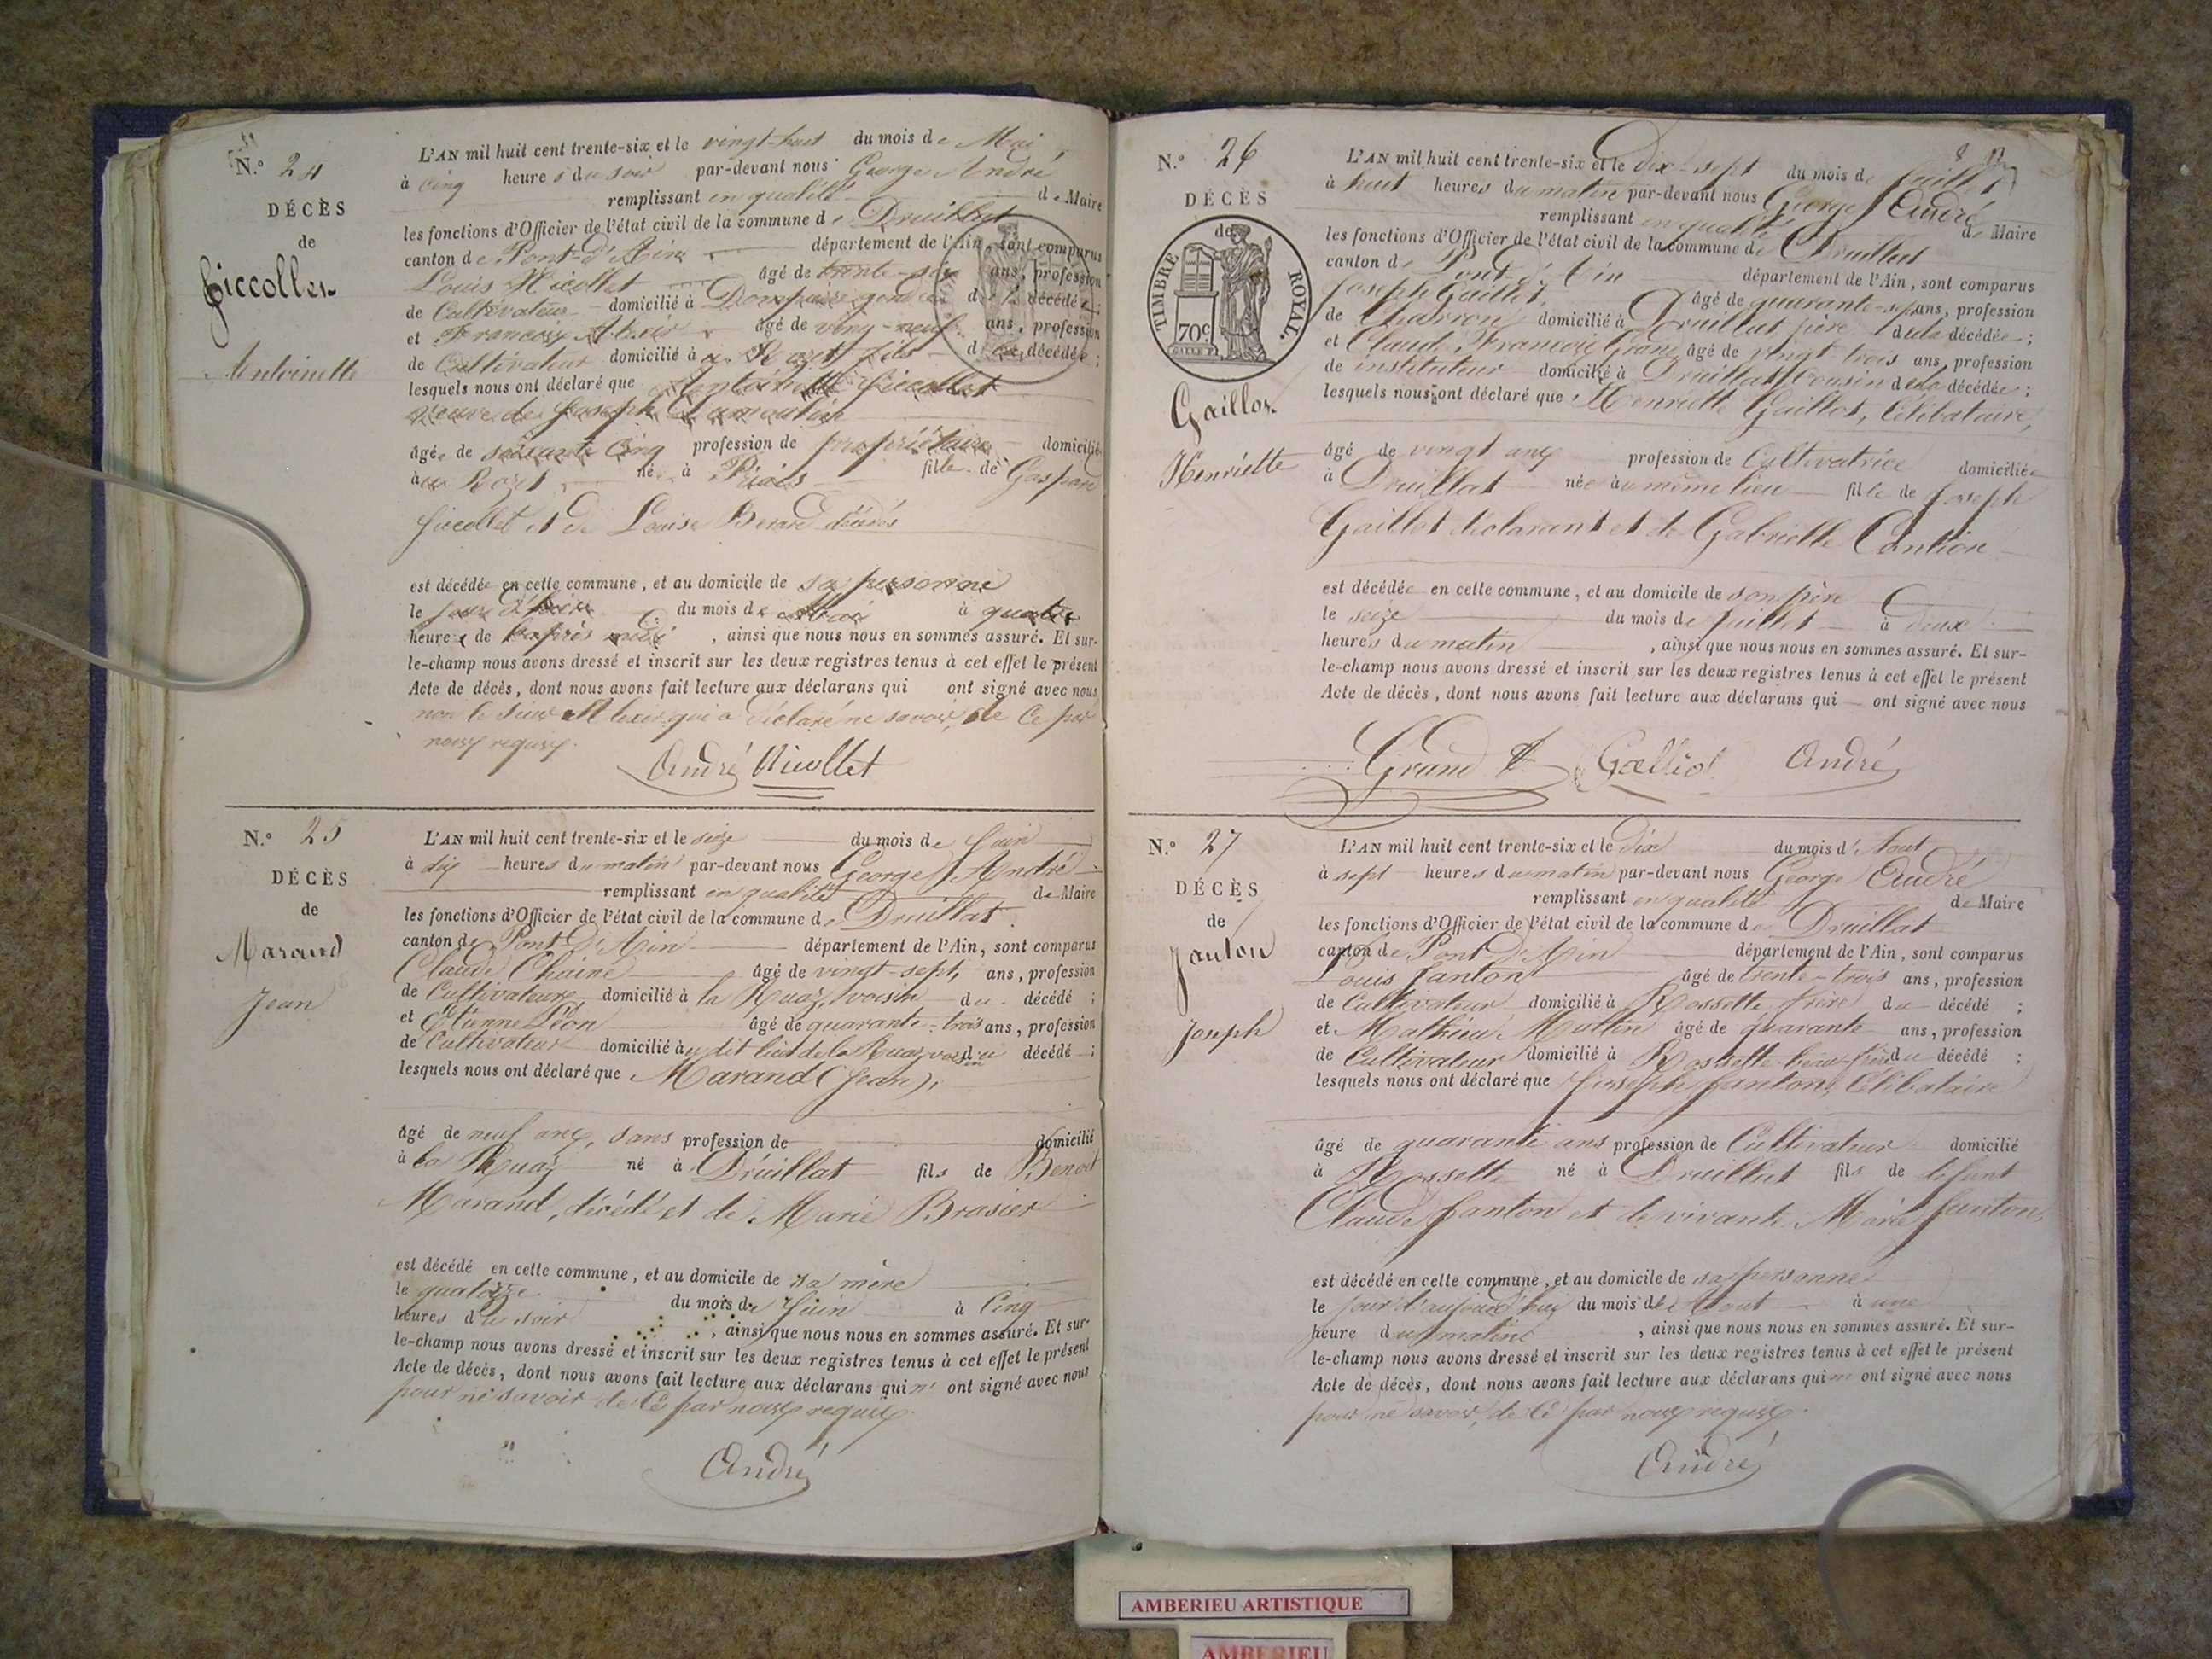 N.° 24
DÉCÈS
de
Ficcollet
Antoinette
L'AN mil huit cent trente-six et le vingt-huit du mois de Mai
à cinq heures du soir par-devant nous George André
remplissant en qualité de Maire
les fonctions d'Officier de l'état civil de la commune de Druillat
canton de Pont-d'Ain département de l'Ain, sont comparus
Louis Nicollet âgé de trente-six ans, profession
de Cultivateur domicilié à Dompierre gendre de la décédée;
et François âgé de vingt-neuf ans, profession
de Cultivateur domicilié à fils de la décédée;
lesquels nous ont déclaré que Antoinette Ficcollet
veuve de Joseph
âgée de soixante cinq profession de propriétaire domiciliée
née à Priais fille de Gaspard
Ficcollet et de Louise décédés
est décédée en cette commune, et au domicile de sa personne
le jour d'hier du mois de Mai à quatre
heures de l'après midi, ainsi que nous nous en sommes assuré. Et sur-
le-champ nous avons dressé et inscrit sur les deux registres tenus à cet effet le présent
Acte de décès, dont nous avons fait lecture aux déclarans qui ont signé avec nous
non le sieur qui a déclaré ne savoir, de ce par
nous requis.
André Nicollet
N.° 25
DÉCÈS
de
Marand
Jean
L'AN mil huit cent trente-six et le seize du mois de Juin
à dix heures du matin par-devant nous George André
remplissant en qualité de Maire
les fonctions d'Officier de l'état civil de la commune de Druillat
canton de Pont-d'Ain département de l'Ain, sont comparus
Claude Chainé âgé de vingt-sept ans, profession
de Cultivateur domicilié à la Ruaz, voisin du décédé;
et Etienne Léon âgé de quarante-trois ans, profession
de Cultivateur domicilié au dit lieu de la Ruaz voisin du décédé;
lesquels nous ont déclaré que Marand (Jean),
âgé de neuf ans, sans profession de domicilié
à la Ruaz né à Druillat fils de Benoit
Marand, décédé et de Marie Brasier
est décédé en cette commune, et au domicile de sa mère
le quatorze du mois de Juin à cinq
heures du soir, ainsi que nous nous en sommes assuré. Et sur-
le-champ nous avons dressé et inscrit sur les deux registres tenus à cet effet le présent
Acte de décès, dont nous avons fait lecture aux déclarans qui n' ont signé avec nous
pour ne savoir de ce par nous requis.
André
N.° 26
DÉCÈS
de
TIMBRE ROYAL.
70c
Gaillot
Henriette
L'AN mil huit cent trente-six et le Dix-sept du mois de Juillet
à huit heures du matin par-devant nous George André
remplissant en qualité de Maire
les fonctions d'Officier de l'état civil de la commune de Druillat
canton de Pont d'Ain département de l'Ain, sont comparus
Joseph Gaillot, âgé de quarante-sept ans, profession
de Charron domicilié à Druillat père de la décédée;
et Claude François Grand âgé de vingt trois ans, profession
de instituteur domicilié à Druillat cousin de la décédée;
lesquels nous ont déclaré que Henriette Gaillot, célibataire,
âgé de vingt ans profession de Cultivatrice domiciliée
à Druillat née au même lieu fille de Joseph
Gaillot déclarant et de Gabrielle
est décédée en cette commune, et au domicile de son père
le seize du mois de Juillet à deux
heures du matin, ainsi que nous nous en sommes assuré. Et sur-
le-champ nous avons dressé et inscrit sur les deux registres tenus à cet effet le présent
Acte de décès, dont nous avons fait lecture aux déclarans qui ont signé avec nous
Grand Galliot André
N.° 27
DÉCÈS
de
Janton
Joseph
L'AN mil huit cent trente-six et le Dix du mois d'Aout
à sept heures du matin par-devant nous George André
remplissant en qualité de Maire
les fonctions d'Officier de l'état civil de la commune de Druillat
canton de Pont d'Ain département de l'Ain, sont comparus
Louis Janton âgé de trente-trois ans, profession
de Cultivateur domicilié à Rossette, frère du décédé;
et Mathieu âgé de quarante ans, profession
de Cultivateur domicilié à Rossette beau-frère du décédé;
lesquels nous ont déclaré que Joseph Janton, célibataire
âgé de quarante ans profession de Cultivateur domicilié
à Rossette né à Druillat fils de défunt
Claude Janton et de vivante Marie Janton,
est décédé en cette commune, et au domicile de sa personne
le jour d'aujourd'hui du mois de Aout à une
heure du matin, ainsi que nous nous en sommes assuré. Et sur-
le-champ nous avons dressé et inscrit sur les deux registres tenus à cet effet le présent
Acte de décès, dont nous avons fait lecture aux déclarans qui n' ont signé avec nous
pour ne savoir, de ce par nous requis.
André
AMBERIEU ARTISTIQUE
AMBERIEU